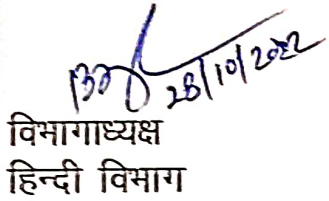 28/10/2022
विभागाध्यक्ष
हिन्दी विभाग